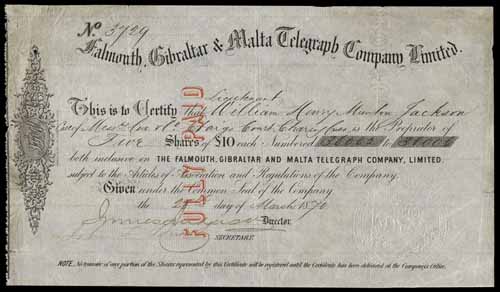 No. 3729
Falmouth, Gibraltar & Malta Telegraph Company, Limited.
Lieutenant
This is to Certify that William Henry Jackson
Craigs Court Charing Cross is the Proprietor of
Five Shares of £10 each Numbered to
both inclusive in THE FALMOUTH, GIBRALTAR AND MALTA TELEGRAPH COMPANY, LIMITED.
subject to the Articles of Association and Regulations of the Company.
Given under the Common Seal of the Company
the day of March 1870
Director.
SECRETARY.
FULLY PAID
NOTE. No transfer of any portion of the Shares represented by this Certificate will be registered until the Certificate has been delivered at the Company's Office.